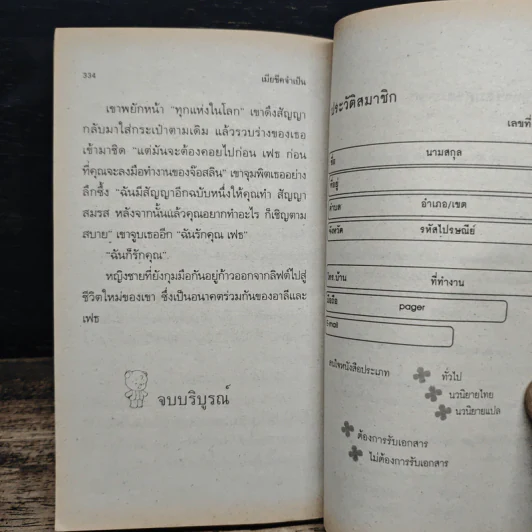 334
เมียขัดจำเป็น
เขาพยักหน้า "ทุกแห่งในโลก" เขาดึงสัญญา
กลับมาใส่กระเป๋าตามเดิม แล้วรวบร่างของเธอ
เข้ามาชิด "แต่มันจะต้องคอยไปก่อน เฟธ ก่อน
ที่คุณจะลงมือทำงานของจ๊อสลิน" เขาจุมพิตเธออย่าง
ลึกซึ้ง "ฉันมีสัญญาอีกฉบับหนึ่งให้คุณทำ สัญญา
สมรส หลังจากนั้นแล้วคุณอยากทำอะไร ก็เชิญตาม
สบาย" เขาจูบเธออีก "ฉันรักคุณ เฟธ"
"ฉันก็รักคุณ"
หญิงชายที่ยังกุมมือกันอยู่ก้าวออกจากลิฟต์ไปสู่
ชีวิตใหม่ของเขา ซึ่งเป็นอนาคตร่วมกันของอาลีและ
เฟธ
จบบริบูรณ์
ประวัติสมาชิก
เลขที่
ชื่อ นามสกุล
ที่อยู่
ตำบล อำเภอ/เขต
จังหวัด รหัสไปรษณีย์
โทร.บ้าน ที่ทำงาน
มือถือ pager
E-mail
สนใจหนังสือประเภท ทั่วไป
นวนิยายไทย
นวนิยายแปล
ต้องการรับเอกสาร
ไม่ต้องการรับเอกสาร